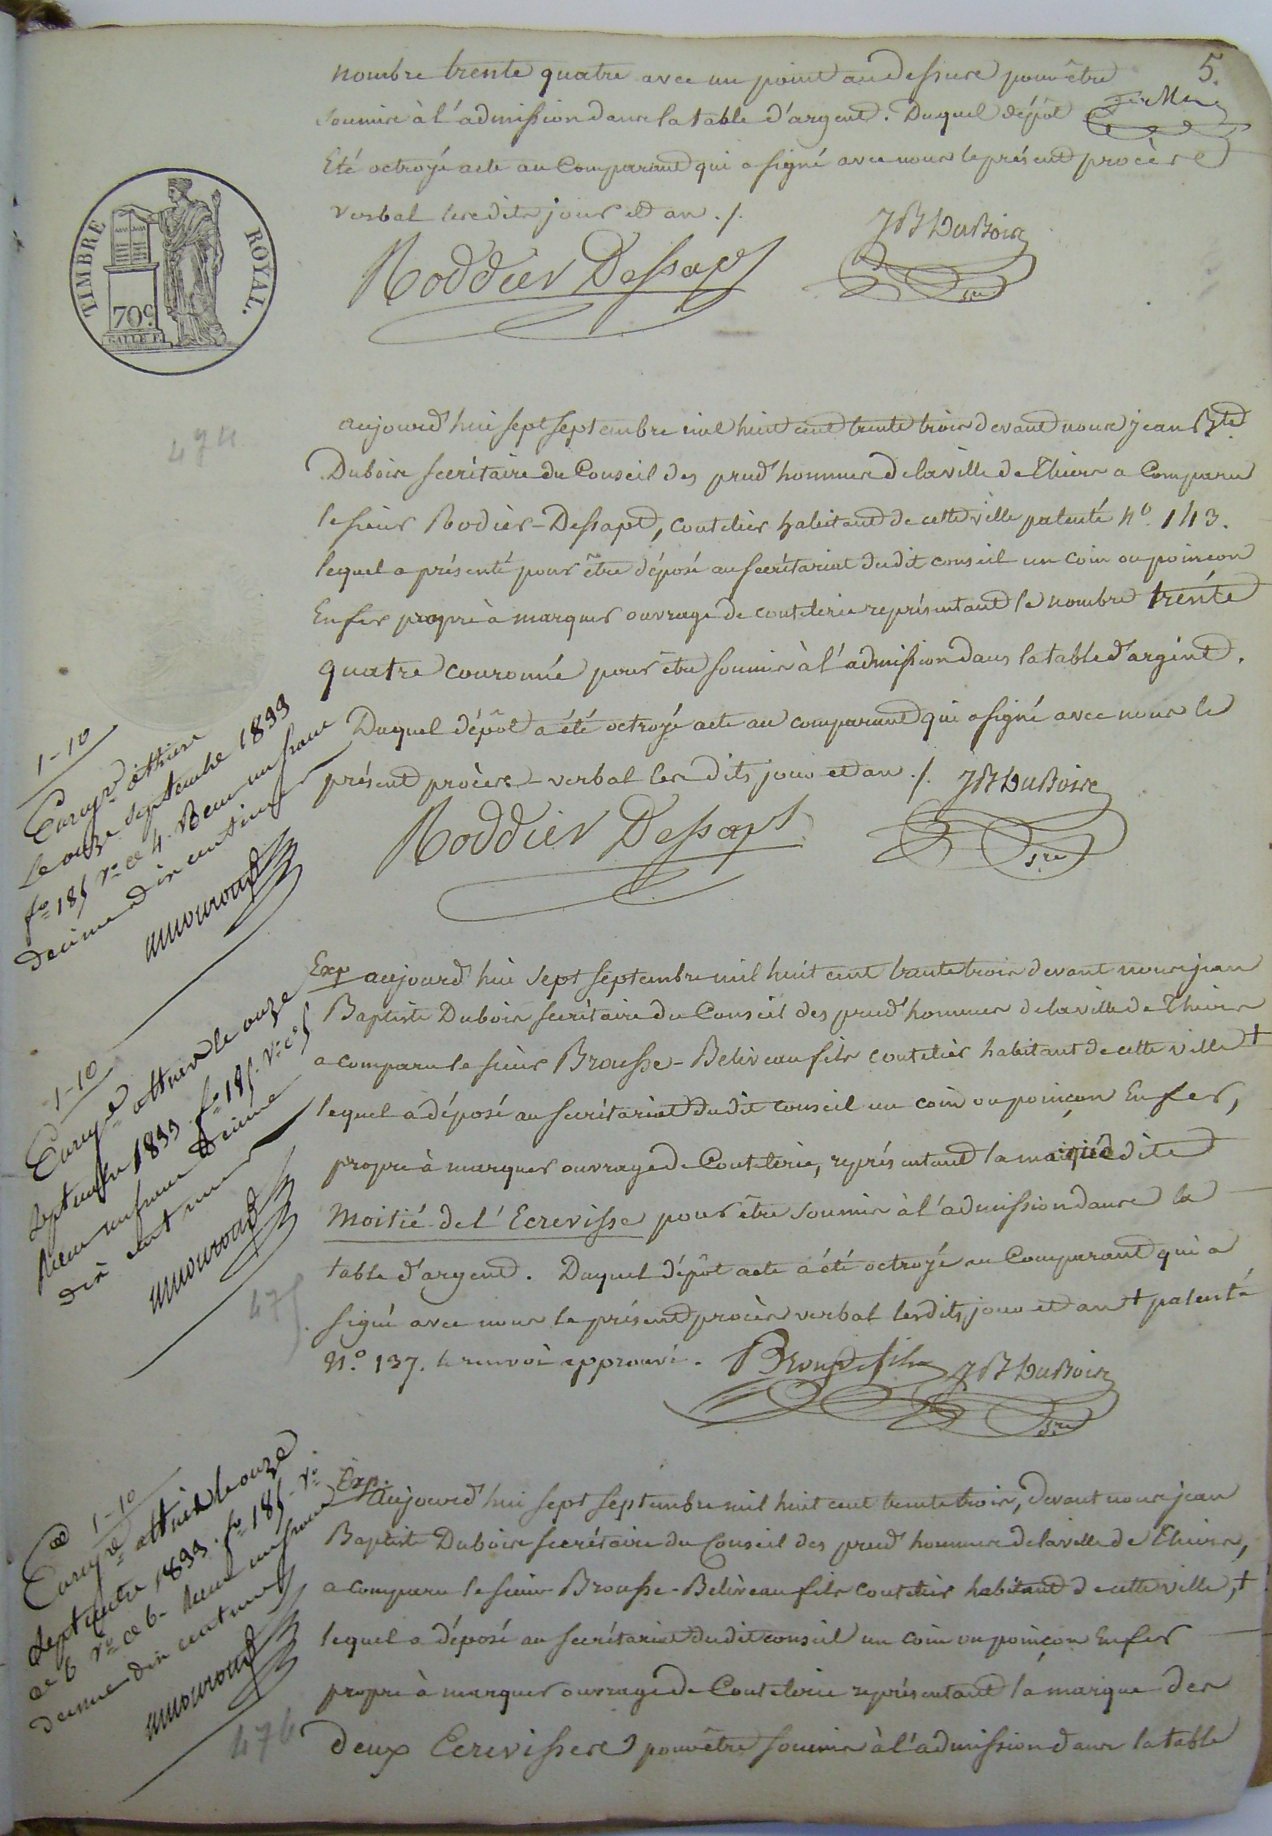 5.
nombre trente quatre avec un point au dessus pour être
soumis à l'admission dans la table d'argent. Duquel dépôt a
Eté octroyé acte au Comparant qui a signé avec nous le présent procès
verbal lesdits jour et an ./.
TIMBRE ROYAL.
70c.
JB DuBois
Roddier Dessapt
sre
474
aujourd'hui sept septembre mil huit cent trente trois devant nous jean Bte
Dubois secrétaire du Conseil des prud'hommes de la ville de Thiers a Comparu
le sieur Rodier-Dessapt, coutelier habitant de cette ville patenté No. 143.
lequel a présenté pour être déposé au secrétariat dudit conseil un coin ou poinçon
En fer propre à marquer ouvrage de coutelerie représentant le nombre trente
quatre couronné pour être soumis à l'admission dans la table d'argent.
Duquel dépôt a été octroyé acte au comparant qui a signé avec nous le
présent procès-verbal les dits jour et an ./.
JB DuBois
Roddier Dessapt
sre
1-10
Enregé. à thiers
le onze septembre 1833
fo. 185 ro. ce 4. Recu un franc
decime dix centimes
Exp aujourd'hui sept septembre mil huit cent trente trois devant nous jean
Baptiste Dubois secrétaire du Conseil des prud'hommes de la ville de Thiers
a comparu le sieur Brousse-Beliveau fils coutelier habitant de cette ville +
lequel a déposé au secrétariat dudit conseil un coin ou poinçon En fer,
propre à marquer ouvrage de Coutelerie, représentant la marque dite
Moitié de l'Ecrevisse pour être soumis à l'admission dans la
table d'argent. Duquel dépôt acte a été octroyé au Comparant qui a
signé avec nous le présent procès verbal lesdits jour et an + patenté
N.o 137. le renvoi approuvé.
Brousse fils
JB DuBois
sre
1-10
Enregé. à thiers le onze
septembre 1833 fo. 185. ro. ce 5
Recu un franc décime
dix centimes
475
Exp. aujourd'hui sept septembre mil huit cent trente trois, devant nous jean
Baptiste Dubois secrétaire du Conseil des prud'hommes de la ville de Thiers,
a comparu le sieur Brousse-Beliveau fils coutelier habitant de cette ville, +
lequel a déposé au secrétariat dudit conseil un coin ou poinçon En fer
propre à marquer ouvrage de Coutelerie représentant la marque des
deux Ecrevisses pour être soumis à l'admission dans la table
1-10
Enregé. à thiers le onze
septembre 1833. fo. 185. ro.
ce 6 Recu un franc
decime dix centimes
476